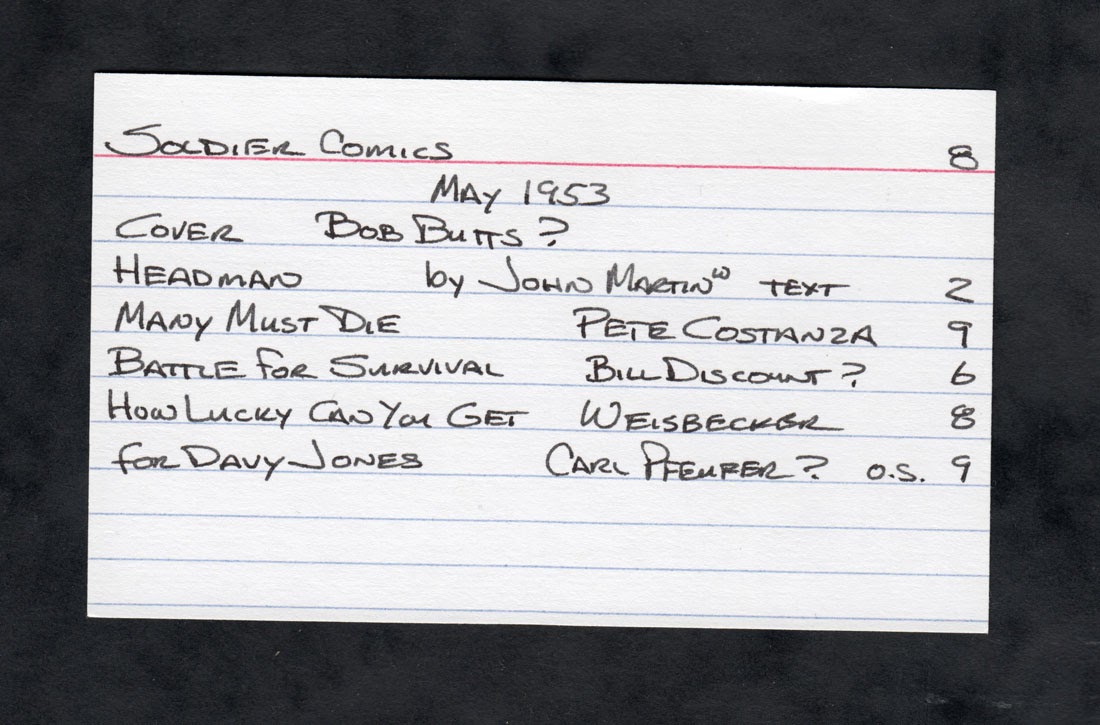 Soldier Comics 8
May 1953
Cover Bob Butts ?
Headman by John Martin w text 2
Many Must Die Pete Costanza 9
Battle for Survival Bill Discount ? 6
How Lucky Can You Get Weisbecker 8
for Davy Jones Carl Pfeufer ? o.s. 9